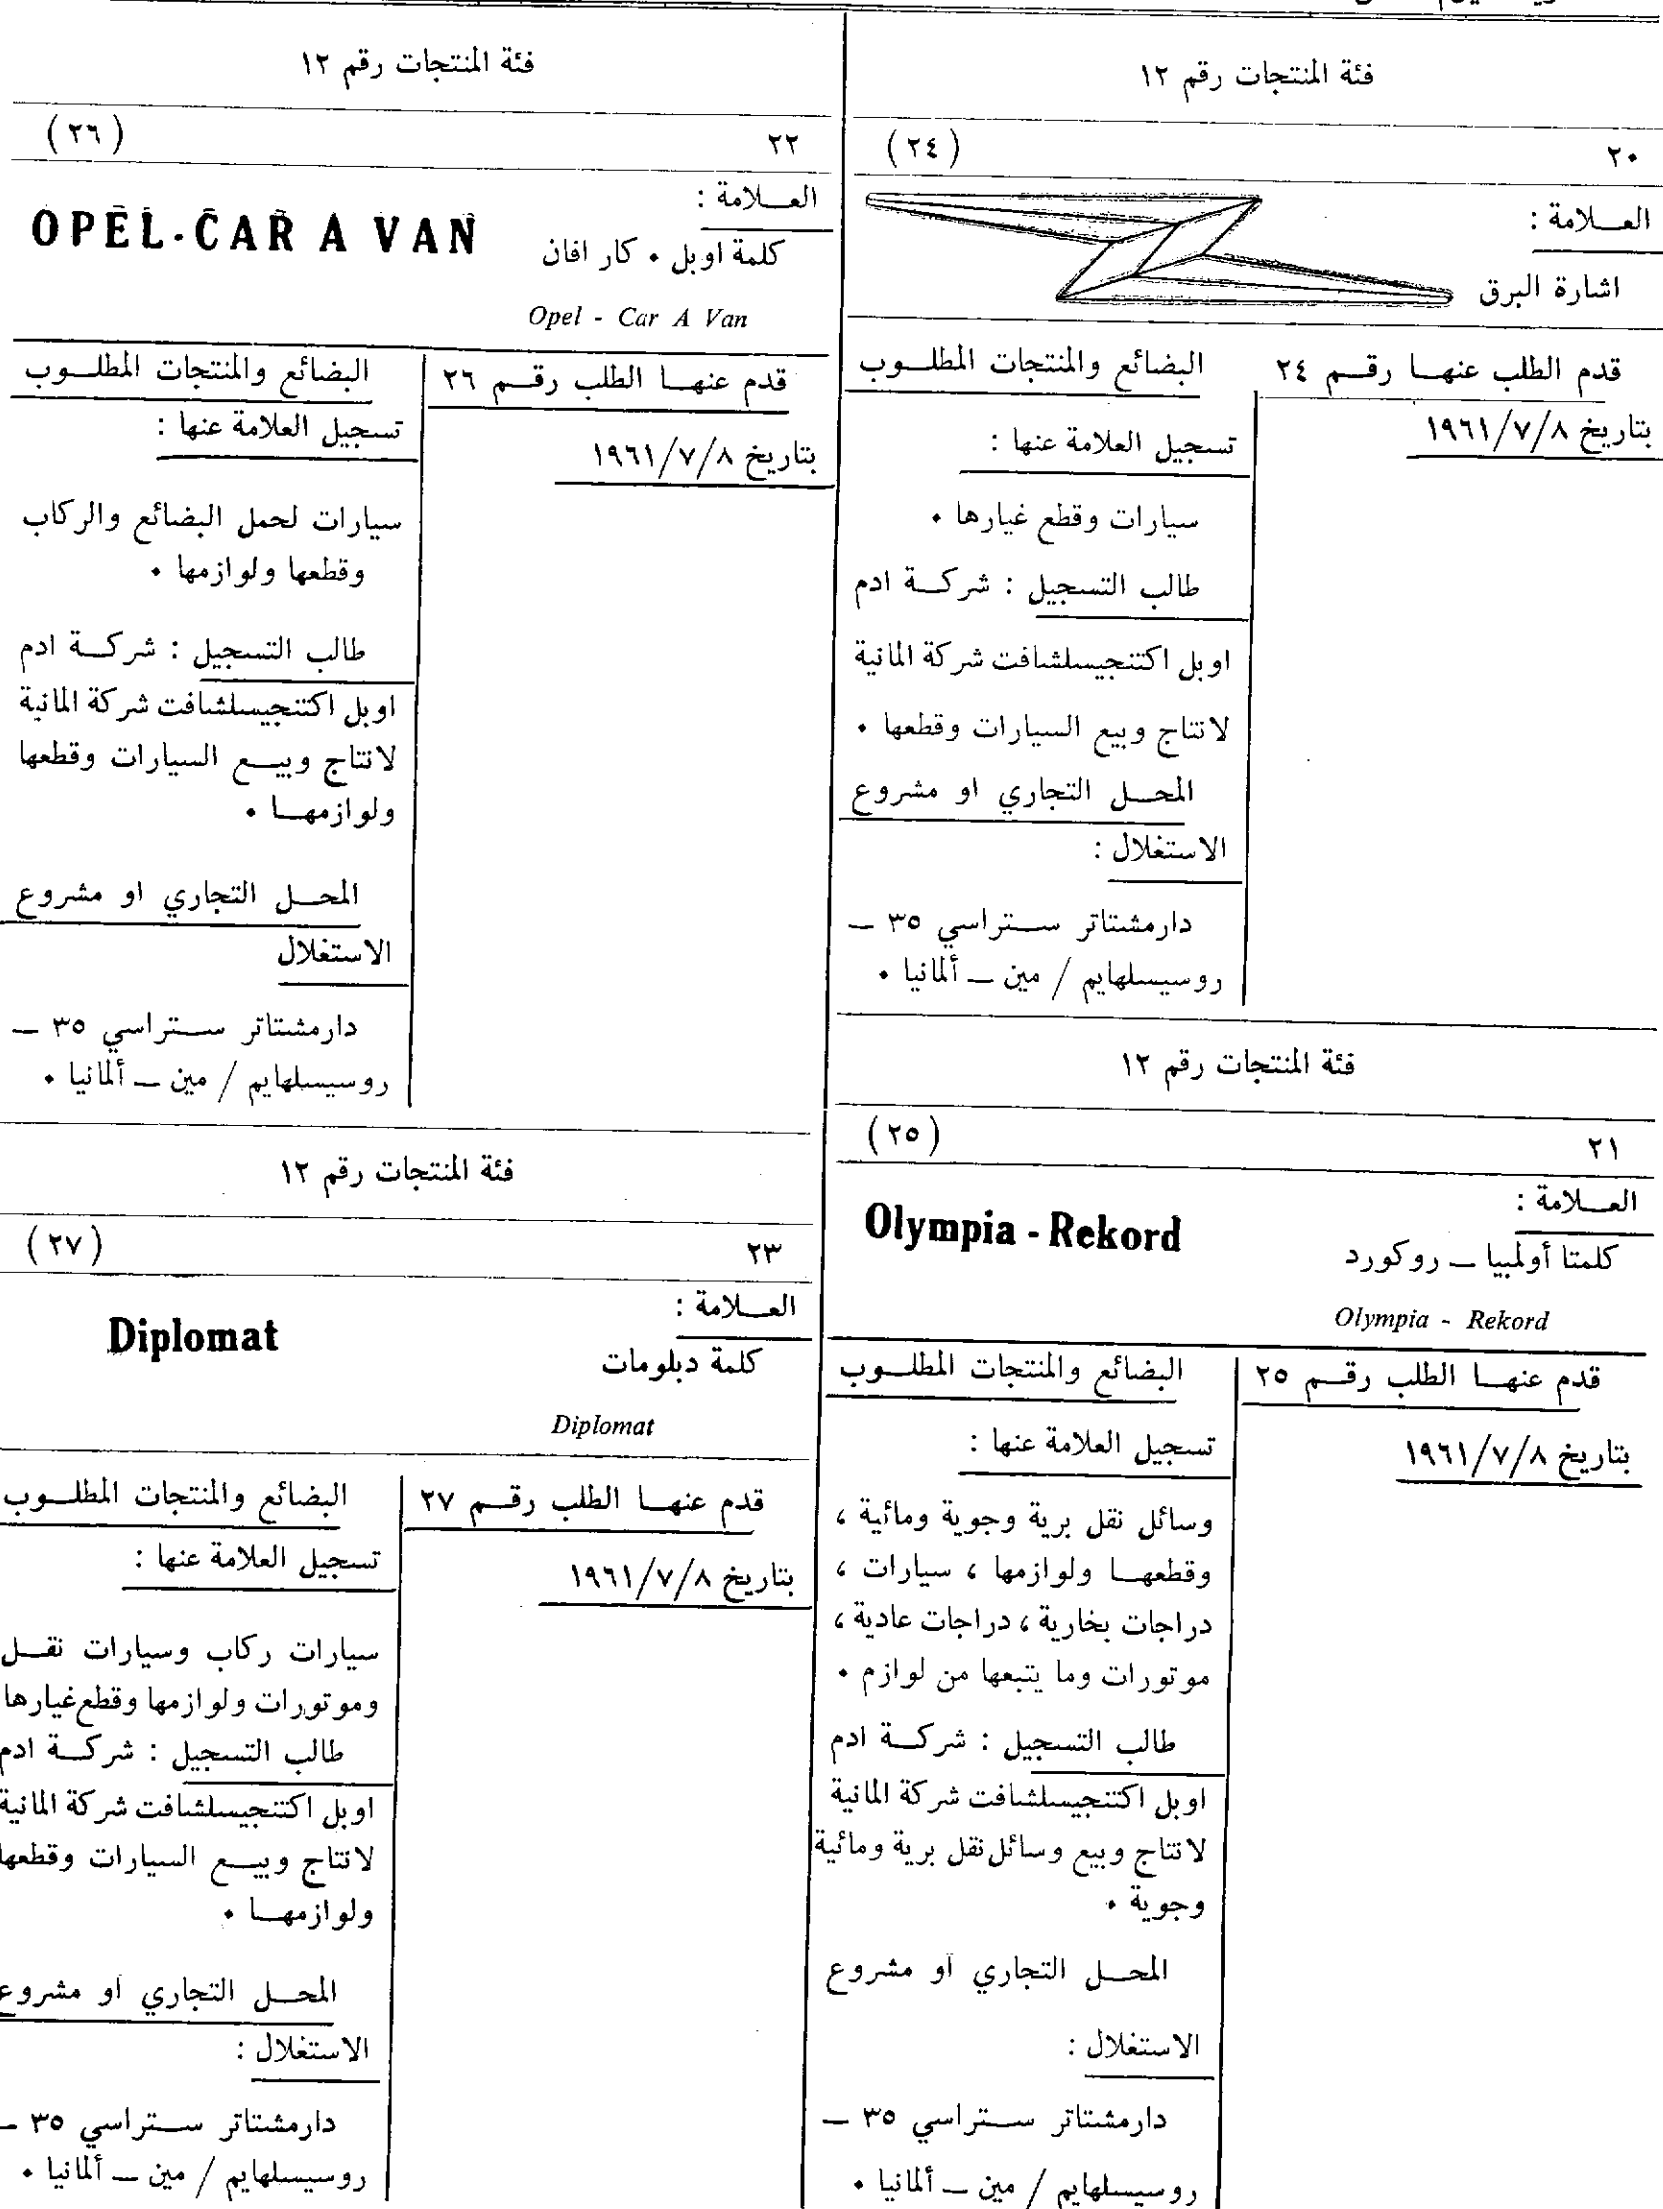 فئة المنتجات رقم ١٢
٢٠ (٢٤)
العـــلامة :
اشارة البرق
قدم الطلب عنهــا رقــم ٢٤
بتاريخ ١٩٦١/٧/٨
البضائع والمنتجات المطلــوب
تسجيل العلامة عنها :
سيارات وقطع غيارها ٠
طالب التسجيل : شركــة ادم
اوبل اكتنجيسلشافت شركة المانية
لانتاج وبيع السيارات وقطعها ٠
المحــل التجاري او مشروع
الاستغلال :
دارمشتاتر ســتراسي ٣٥ ــ
روسيسلهايم / مين ــ ألمانيا ٠
فئة المنتجات رقم ١٢
٢١ (٢٥)
العـــلامة :
Olympia - Rekord
كلمتا أولمبيا ــ روكورد
Olympia - Rekord
قدم عنهــا الطلب رقــم ٢٥
بتاريخ ١٩٦١/٧/٨
البضائع والمنتجات المطلــوب
تسجيل العلامة عنها :
وسائل نقل برية وجوية ومائية ،
وقطعهــا ولوازمها ، سيارات ،
دراجات بخارية ، دراجات عادية ،
موتورات وما يتبعها من لوازم ٠
طالب التسجيل : شركــة ادم
اوبل اكتنجيسلشافت شركة المانية
لانتاج وبيع وسائل نقل برية ومائية
وجوية ٠
المحــل التجاري او مشروع
الاستغلال :
دارمشتاتر ســتراسي ٣٥ ــ
روسيسلهايم / مين ــ ألمانيا ٠
فئة المنتجات رقم ١٢
٢٢ (٢٦)
العـــلامة :
OPEL-CAR A VAN
كلمة اوبل ٠ كار افان
Opel - Car A Van
قدم عنهــا الطلب رقــم ٢٦
بتاريخ ١٩٦١/٧/٨
البضائع والمنتجات المطلــوب
تسجيل العلامة عنها :
سيارات لحمل البضائع والركاب
وقطعها ولوازمها ٠
طالب التسجيل : شركــة ادم
اوبل اكتنجيسلشافت شركة المانية
لانتاج وبيــع السيارات وقطعها
ولوازمهــا ٠
المحــل التجاري او مشروع
الاستغلال
دارمشتاتر ســتراسي ٣٥ ــ
روسيسلهايم / مين ــ ألمانيا ٠
فئة المنتجات رقم ١٢
٢٣ (٢٧)
العـــلامة :
Diplomat
كلمة دبلومات
Diplomat
قدم عنهــا الطلب رقــم ٢٧
بتاريخ ١٩٦١/٧/٨
البضائع والمنتجات المطلــوب
تسجيل العلامة عنها :
سيارات ركاب وسيارات نقــل
وموتورات ولوازمها وقطع غيارها
طالب التسجيل : شركــة ادم
اوبل اكتنجيسلشافت شركة المانية
لانتاج وبيــع السيارات وقطعها
ولوازمهــا ٠
المحــل التجاري او مشروع
الاستغلال :
دارمشتاتر ســتراسي ٣٥ ــ
روسيسلهايم / مين ــ ألمانيا ٠